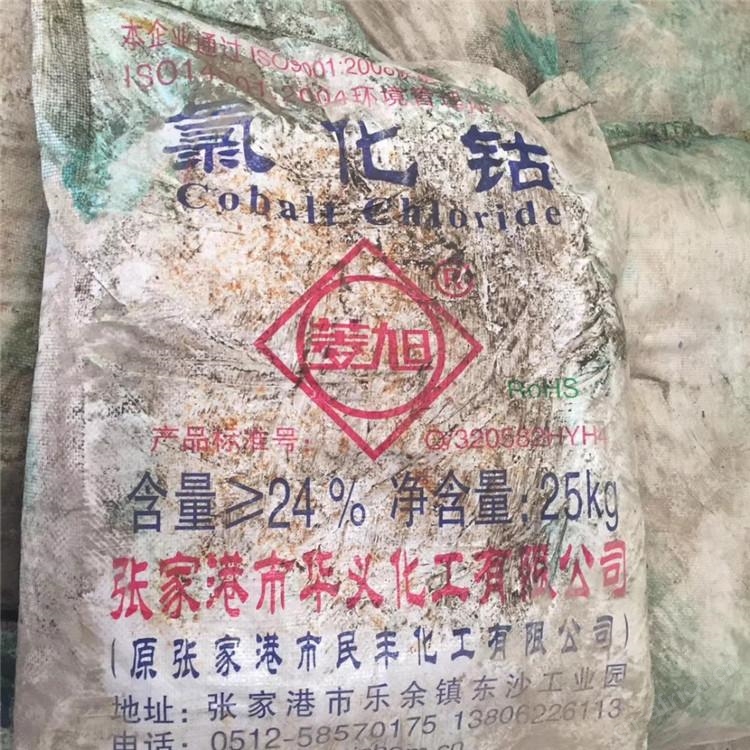 本企业通过ISO9001:2008
ISO14001:2004环境管理
氯化钴
Cobalt Chloride
R
旭
RoHS
产品标准号:
Q/320582HYH4
含量≥24% 净含量:25kg
张家港市华义化工有限公司
(原张家港市民丰化工有限公司)
地址:张家港市乐余镇东沙工业园
电话:0512-58570175 13806226113